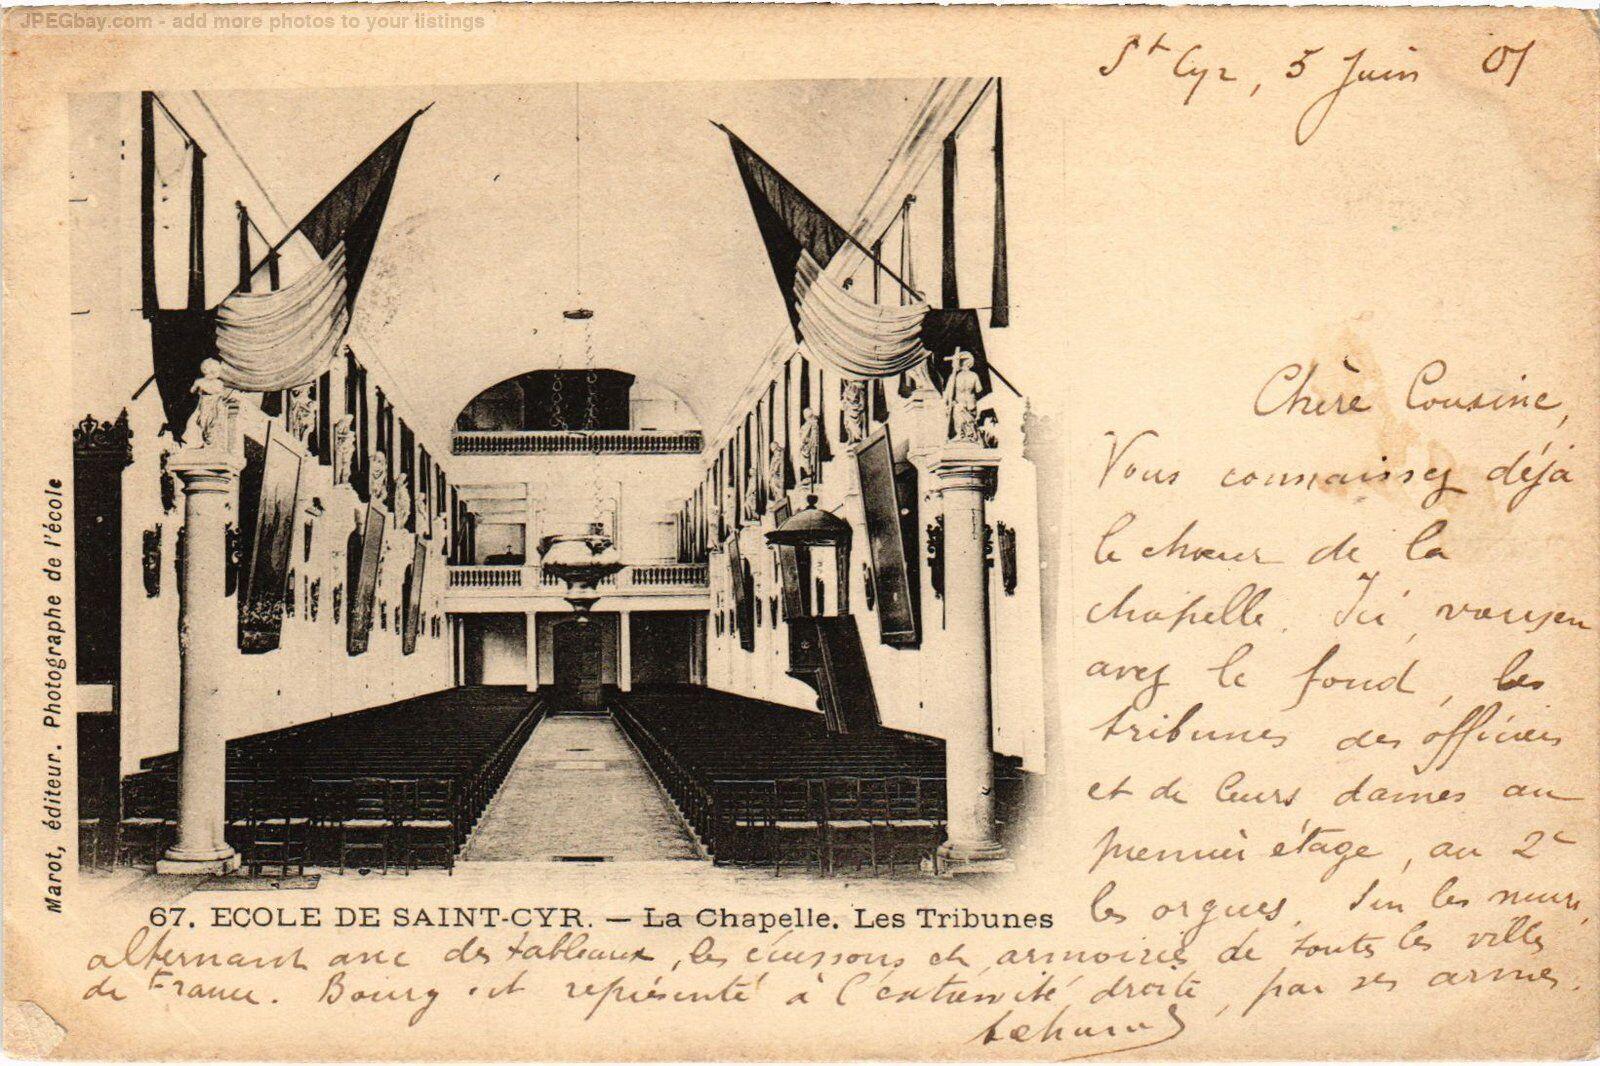 JPEGbay.com - add more photos to your listings
St Cyr, 5 Juin 01
Chère Cousine,
Vous connaissez déjà
le chœur de la
chapelle. Ici, vous en
avez le fond, les
tribunes des officiers
et de leurs dames au
premier étage, au 2e
les orgues. Sur les murs,
alternant avec des tableaux, les écussons et armoiries de toutes les villes
de France. Bourg est représenté à l'extrémité droite, par ses armes.
Marot, éditeur. Photographe de l'école
67. ECOLE DE SAINT-CYR. — La Chapelle. Les Tribunes